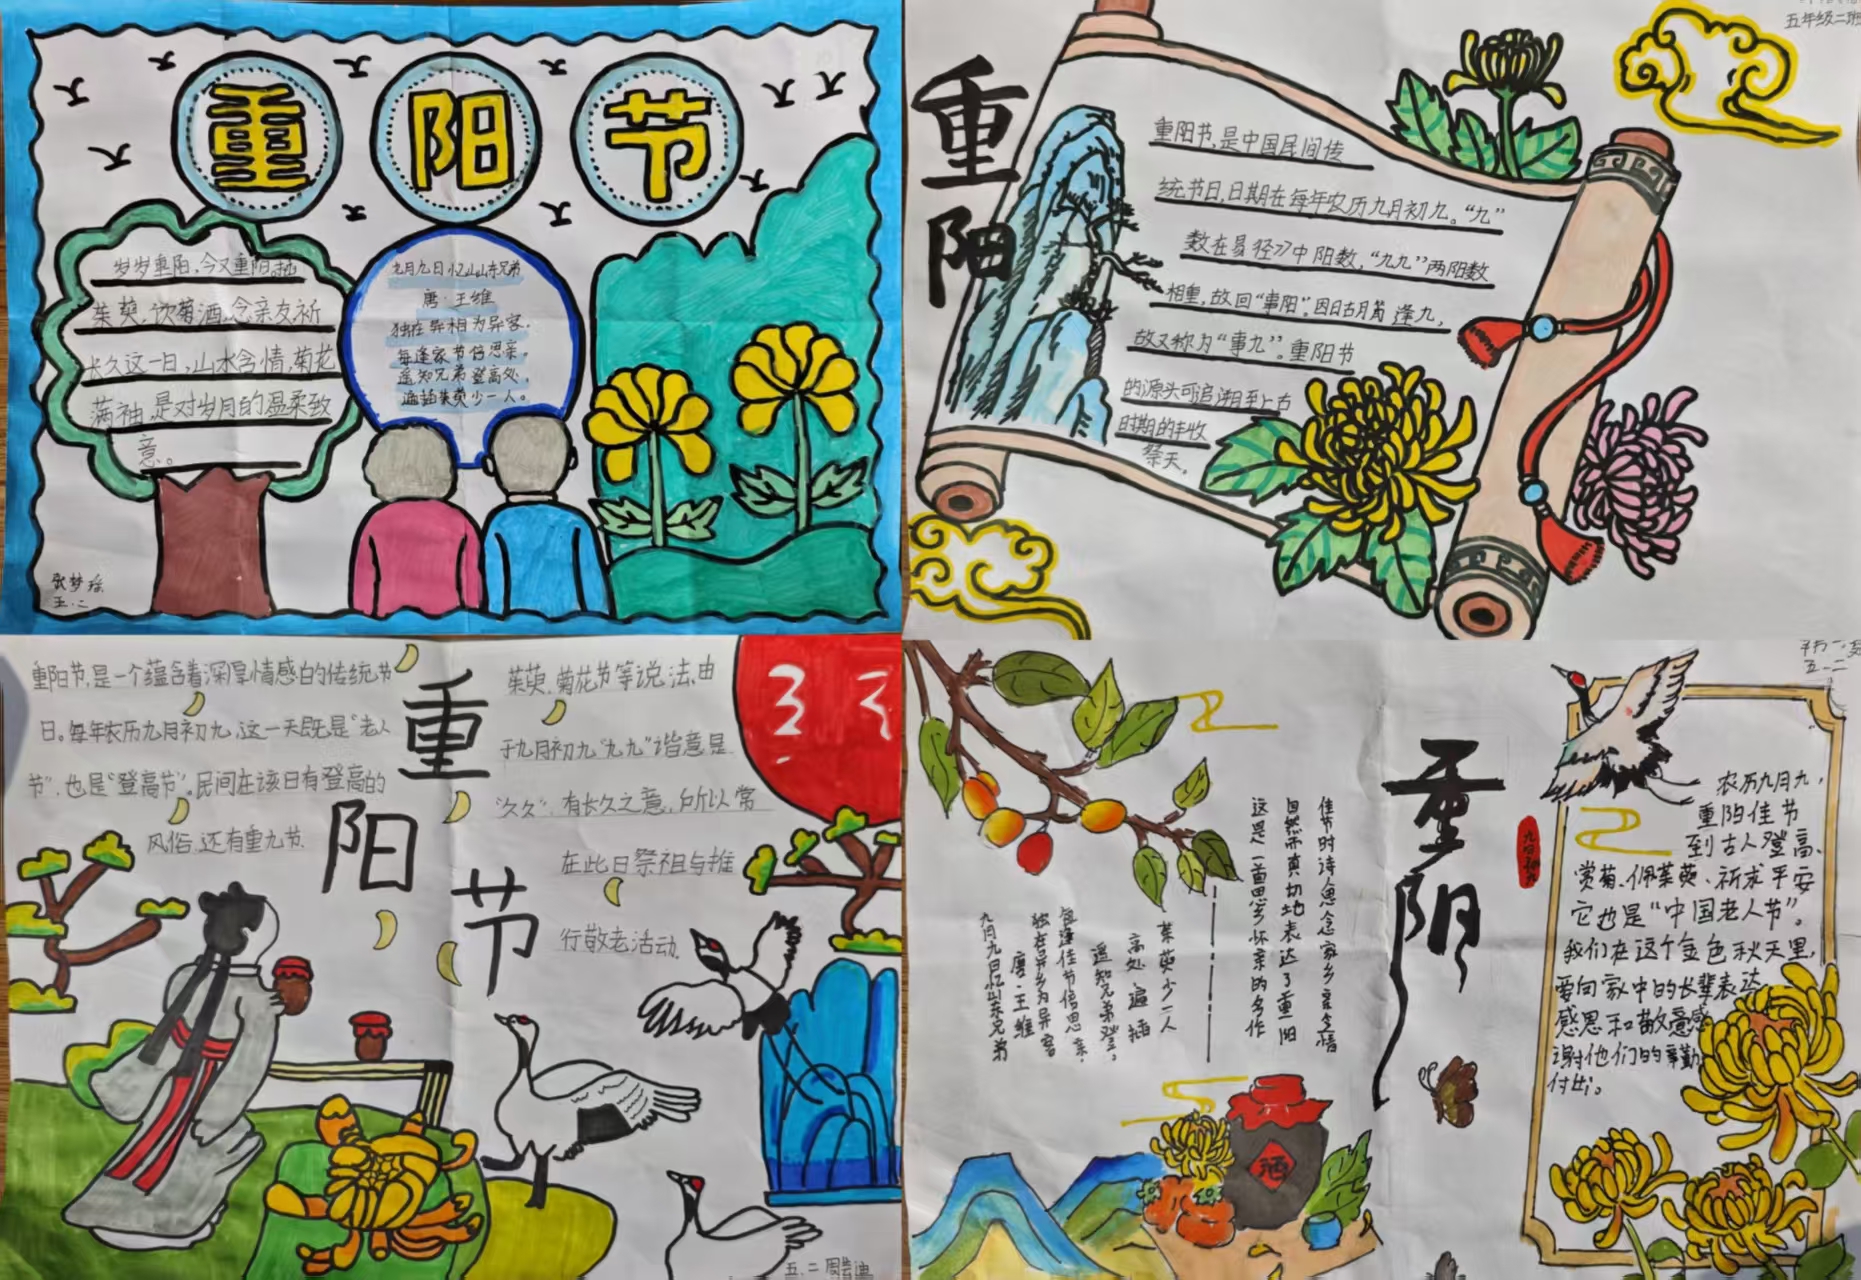 重 阳 节
岁岁重阳,今又重阳。插
茱萸,饮菊酒,念亲友,祈
长久这一日,山水含情,菊花
满袖,是对岁月的温柔致
意。
九月九日忆山东兄弟
唐·王维
独在异相为异客,
每逢家节倍思亲。
遥知兄弟登高处,
遍插茱萸少一人。
张梦瑶
五.二
五年级二班
重
阳
重阳节,是中国民间传
统节日,日期在每年农历九月初九。“九”
数在易径》中阳数,“九九”两阳数
相重,故曰“重阳”。因日古月皆逢九,
故又称为“重九”。重阳节
的源头可追溯目至上古
时期的丰收
祭天。
重阳节,是一个蕴含着深厚情感白的传统节
日。每年农历九月初九,这一天既是“老人
节”,也是“登高节”。民间在该日有登高的
风俗,还有重九节、
重
阳
节
茱萸、菊花节等说法,由
于九月初九“九九”谐意是
“久久”,有长久之意,所以常
在此日祭祖与推
行敬老活动。
五、二
重阳
佳节时诗人思念家乡
自然而真切地表达了重阳
这是一首思乡怀亲的名作
茱萸少一人
高处遍插
遥知兄弟登
每逢佳节倍思亲,
独在异乡为异客
唐·王维
九月九日忆山东兄弟
酒
五.二
农历九月九,
重阳佳节
到古人登高、
赏菊、佩茱萸、祈求平安
它也是“中国老人节”。
我们在这个金色秋天里,
要向家中的长辈表达
感恩和敬意感
谢他们的辛勤
付出。